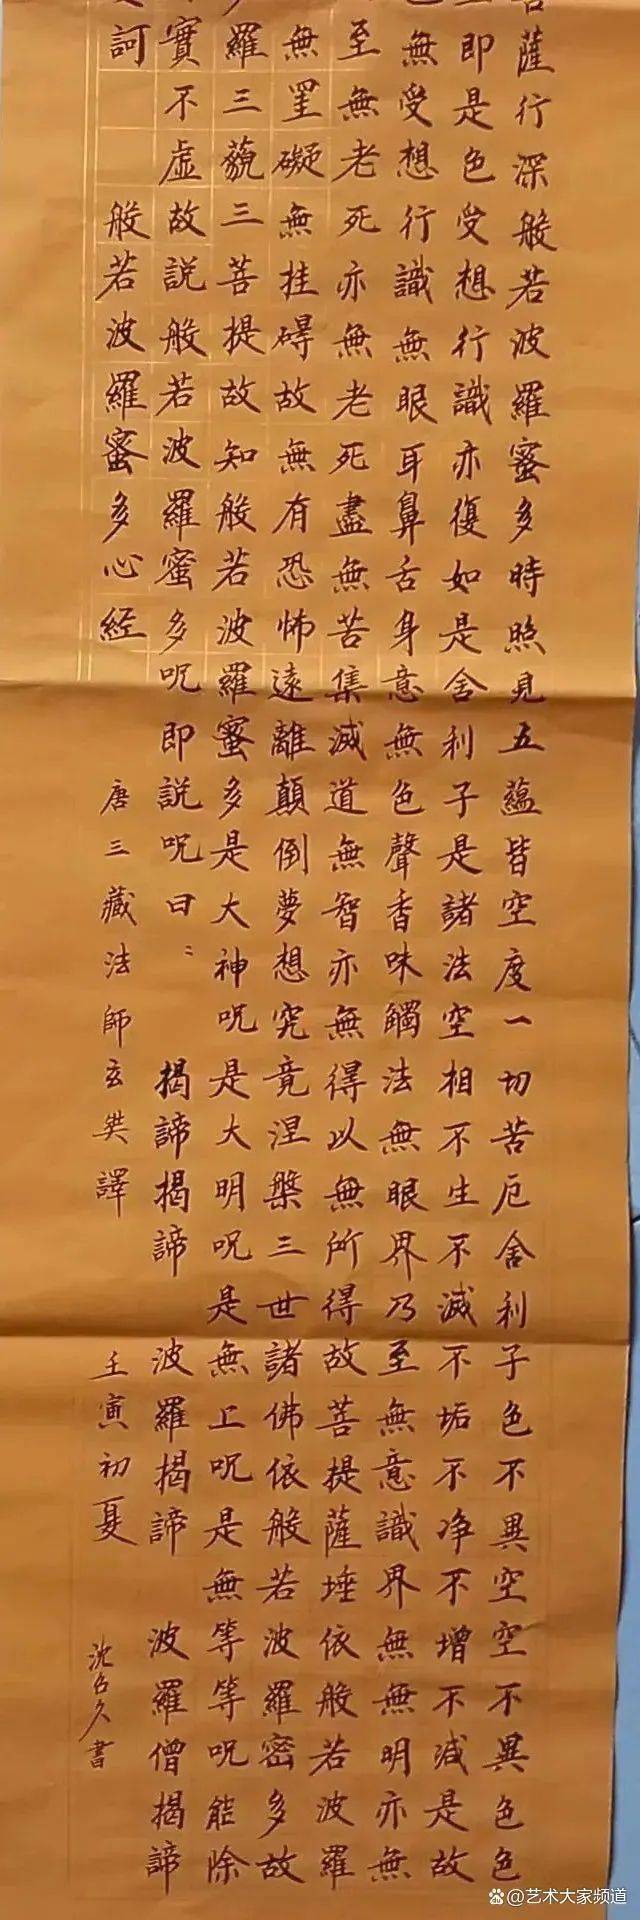 菩薩行深般若波羅蜜多時照見五蘊皆空度一切苦厄舍利子色不異空空不異色色
即是色受想行識亦復如是舍利子是諸法空相不生不滅不垢不净不增不減是故
無受想行識無眼耳鼻舌身意無色聲香味觸法無眼界乃至無意識界無無明亦無
至無老死亦無老死盡無苦集滅道無智亦無得以無所得故菩提薩埵依般若波羅
無罣礙無挂碍故無有恐怖遠離顛倒夢想究竟涅槃三世諸佛依般若波羅密多故
羅三藐三菩提故知般若波羅蜜多是大神呪是大明呪是無上呪是無等等呪能除
實不虛故說般若波羅蜜多呪即說呪曰: 揭諦揭諦 波羅揭諦 波羅僧揭諦
訶 般若波羅蜜多心経
唐三藏法師玄奘譯 壬寅初夏 沈名久書
@艺术大家频道